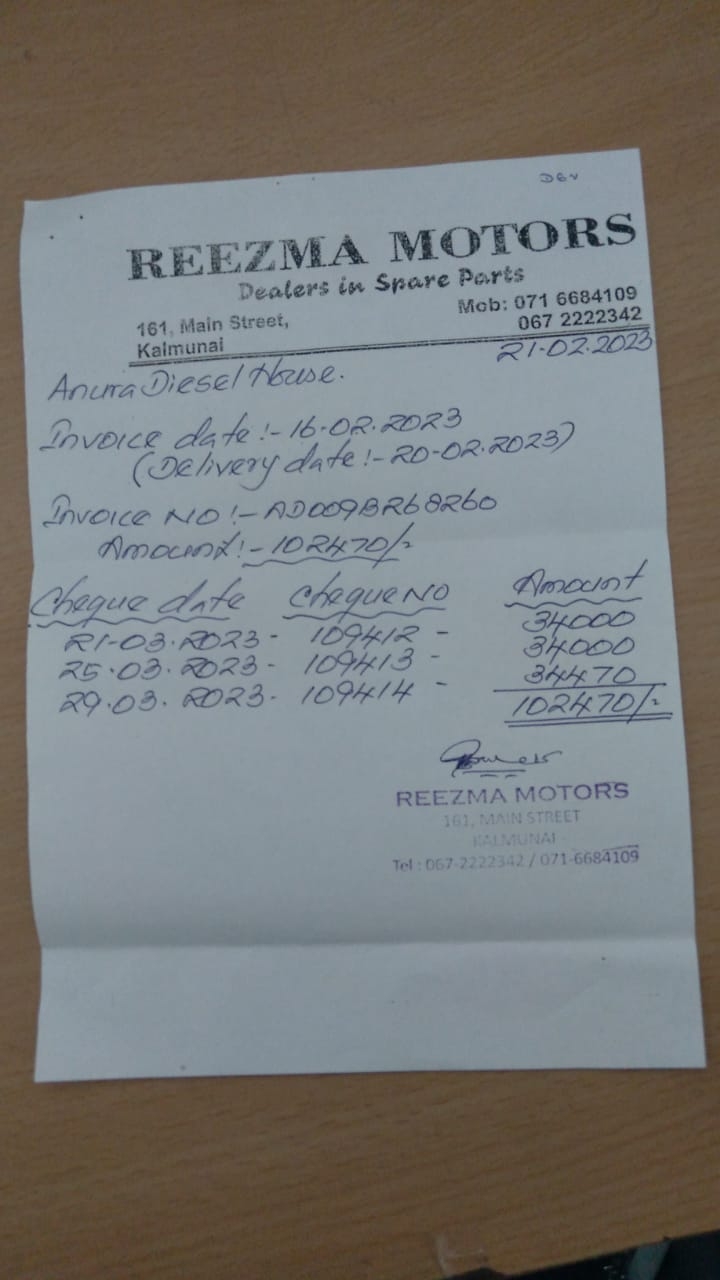 REEZMA MOTORS
Dealers in Spare Parts
161, Main Street,
Kalmunai
Mob: 071 6684109
067 2222342
21.02.2023
Anura Diesel House.
Invoice date :- 16.02.2023
(Delivery date :- 20-02.2023)
Invoice NO :- AD009B268260
Amount :- 102470/-
Cheque date Cheque NO Amount
21-03.2023 - 109412 - 34000
25.03.2023 - 109413 - 34000
29.03.2023 - 109414 - 34470
102470/-
REEZMA MOTORS
161, MAIN STREET
KALMUNAI
Tel : 067-2222342 / 071-6684109